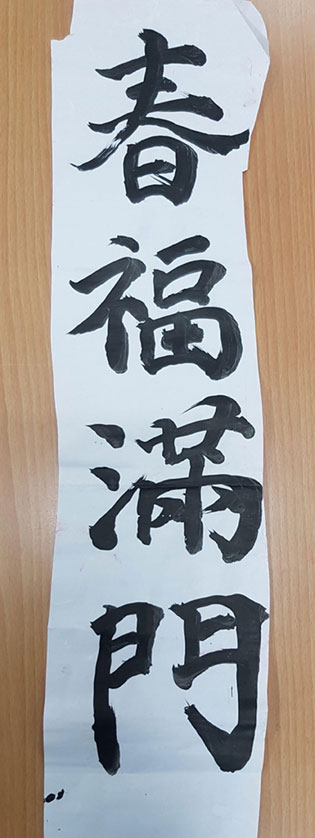 春福滿門